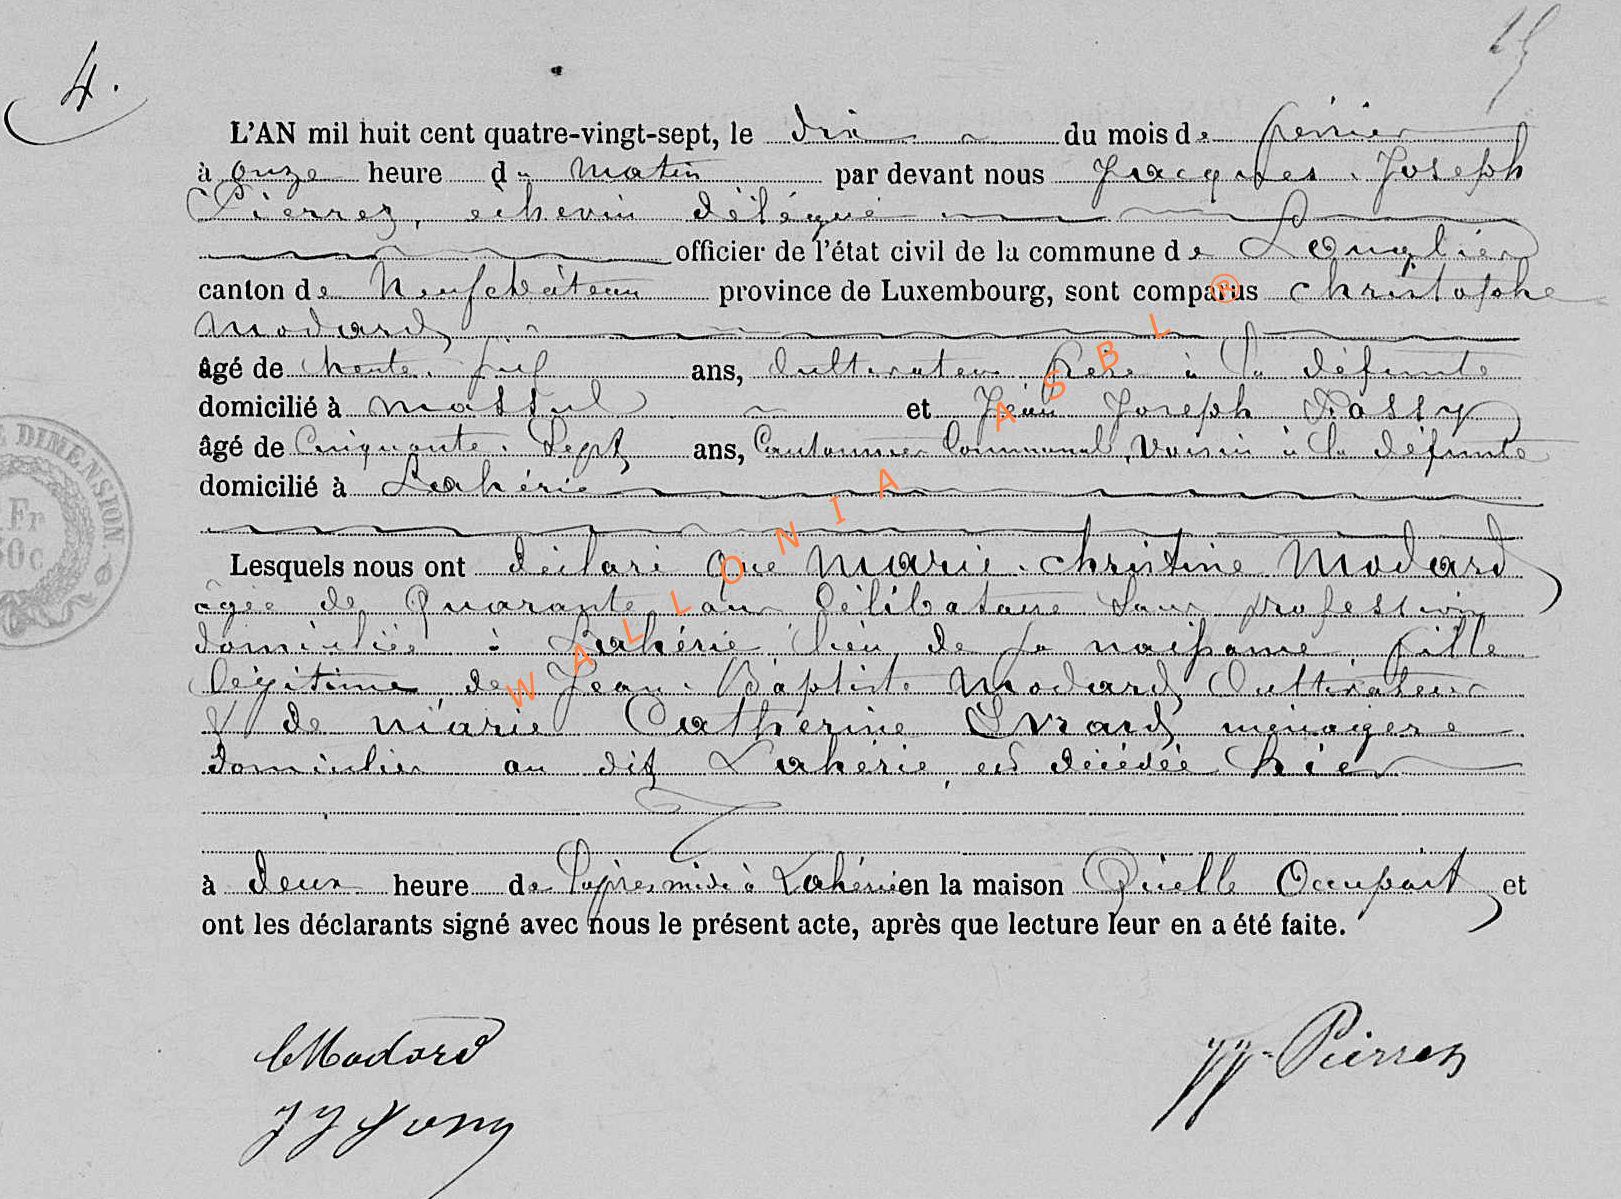 4.
L'AN mil huit cent quatre-vingt-sept, le dix du mois de février
à onze heure du matin par devant nous Jacques Joseph
Pierrez, echevin délégué
officier de l'état civil de la commune de Longlier
canton de Neufchâteau province de Luxembourg, sont comparus christophe
Modard
âgé de trente huit ans, Cultivateur frère à la défunte
domicilié à Massul et Jean Joseph
âgé de Cinquante Sept ans, Cantonnier Communal, Voisin à la défunte
domicilié à Lahérie
Lesquels nous ont déclaré que Marie christine Modard
âgée de Quarante ans Célibataire Sans profession
domiciliée à Lahérie lieu de sa naissance, fille
légitime de Jean Baptiste Modard Cultivateur
& de Marie Catherine Evrard ménagère
domiciliés au dit Lahérie, est décédée hier
à deux heure de l'après midi à Lahérie en la maison Qu'elle Occupait et
ont les déclarants signé avec nous le présent acte, après que lecture leur en a été faite.
CModard
JJ Pierrez
JJ
E DIMENSION.
Fr
50c
WALLONIA ASBL ®